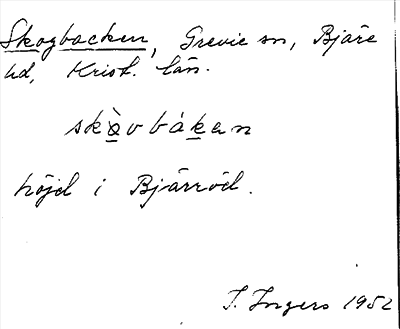 Skogbacken, Grevie sn, Bjäre
hd, Krist. län.
skàvbákan
höjd i Bjärröd.
I. Ingers 1952